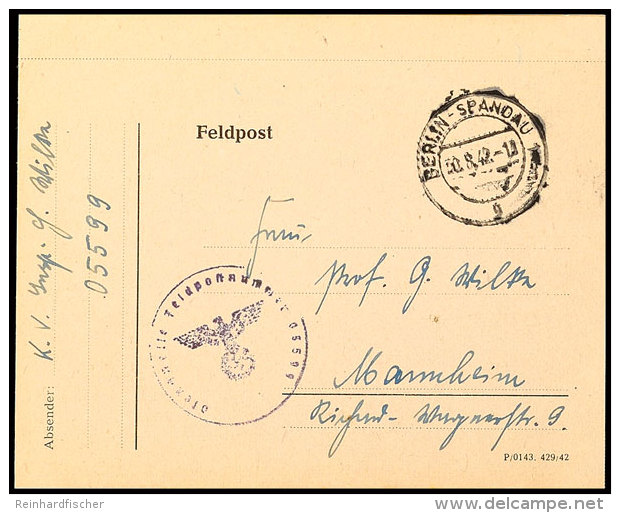 Feldpost
BERLIN-SPANDAU 1
30.8.42.-18
g
Frau
Prof. G. Wilke
Mannheim
Richard-Wagnerstr. 9.
Dienststelle Feldpostnummer 05599
Absender: K. V. Insp. G. Wilke
05599
P/0143. 429/42
Reinhardfischer
delcampe.net